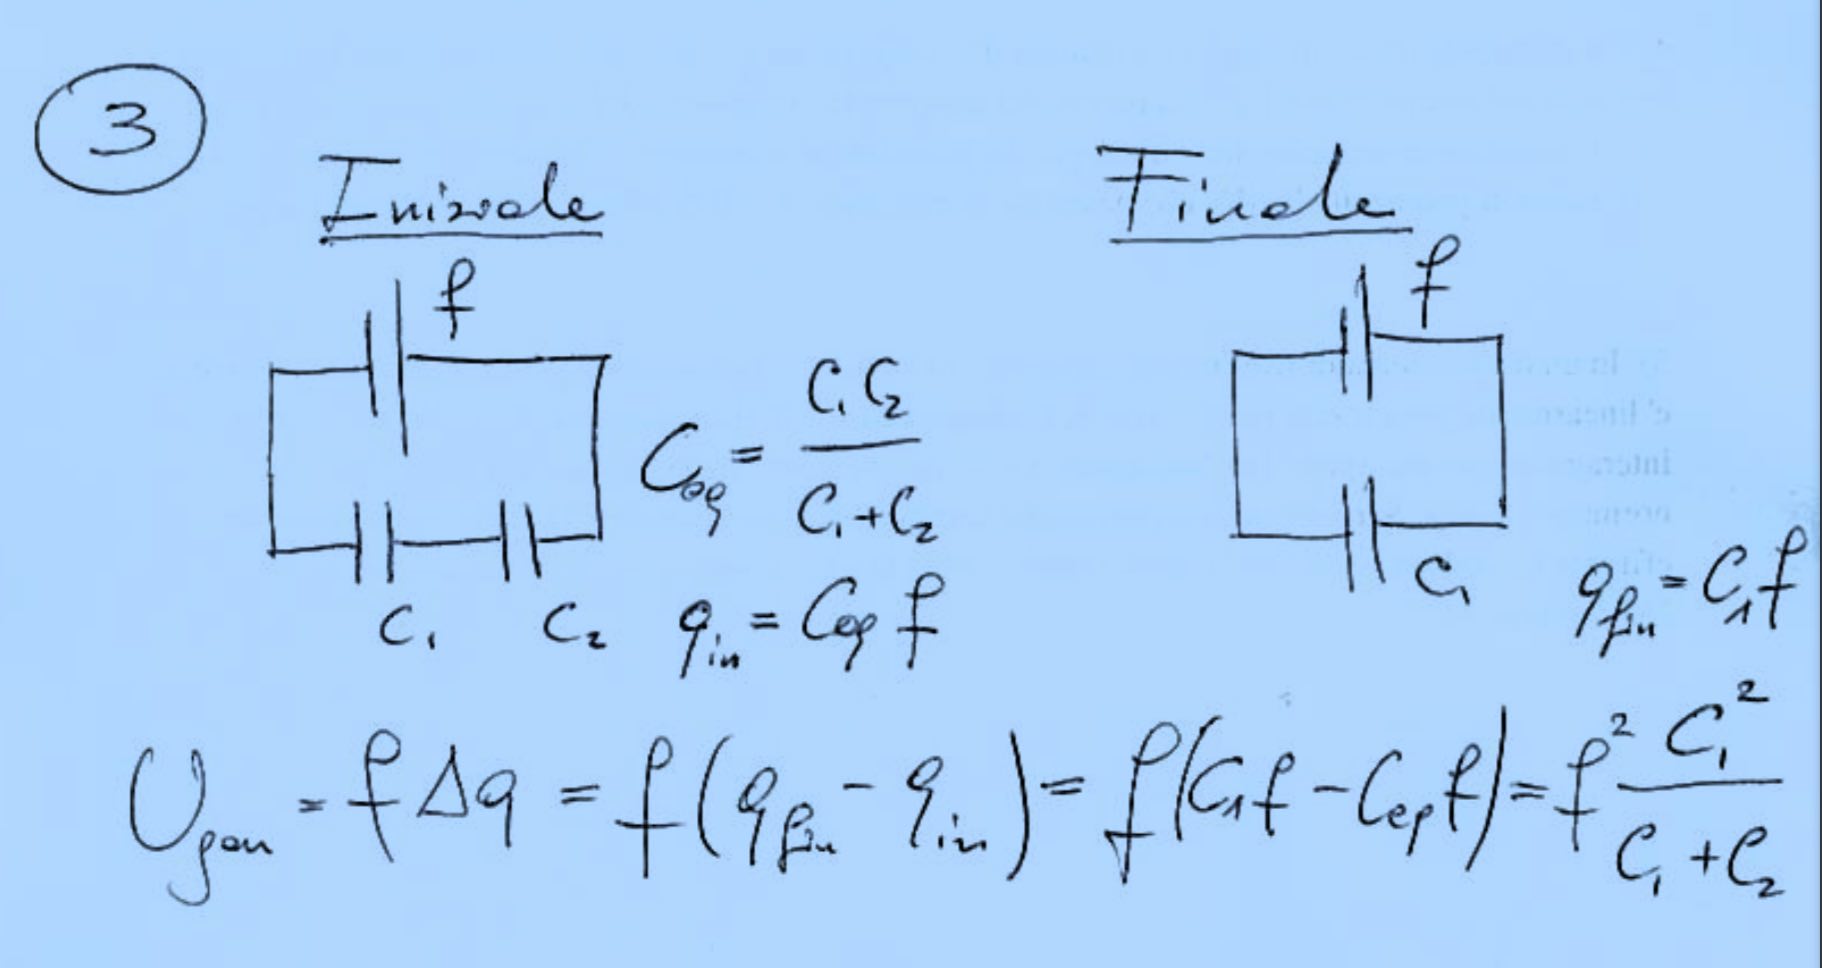 3
Iniziale
Finale
f
f
C_eq = C₁C₂ / (C₁+C₂)
C₁ C₂
q_in = C_eq f
C₁
q_fin = C₁f
U_gen = f Δq = f(q_fin - q_in) = f(C₁f - C_eq f) = f² C₁² / (C₁+C₂)